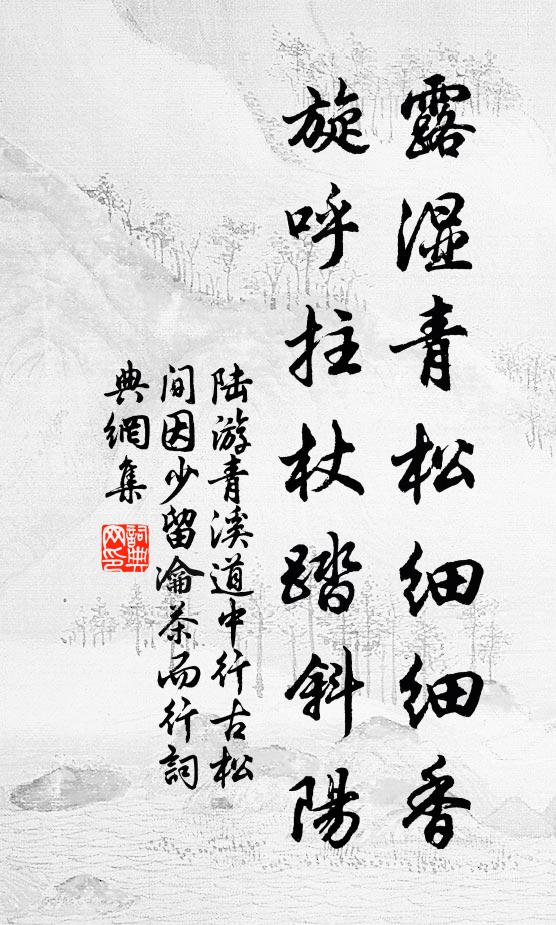 露湿青松细细香
旋呼拄杖踏斜陽
陆游青溪道中行古松
间因少留瀹茶而行詞
典網集
詞典
网印